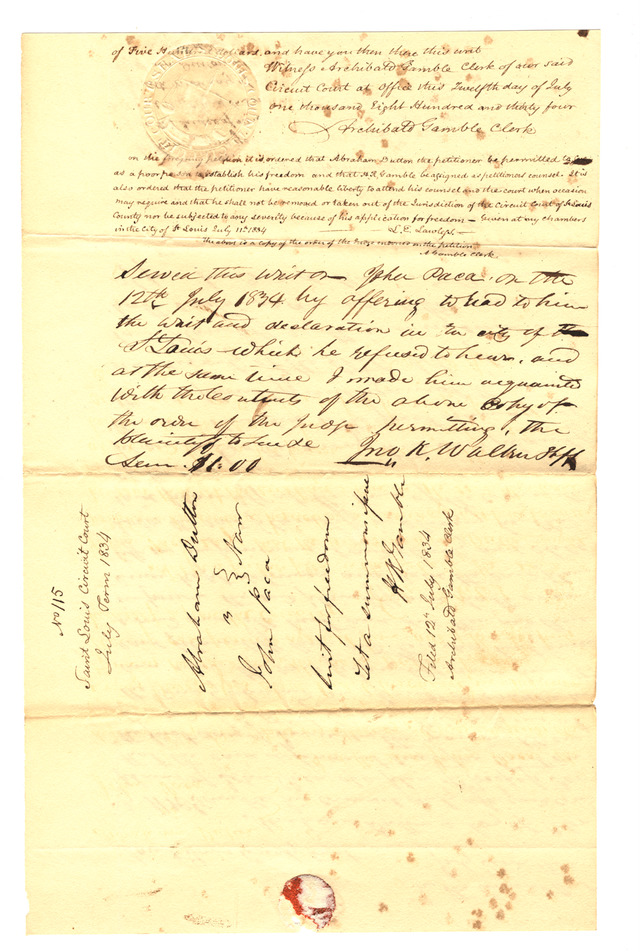 of Five Hundred dollars, and have you then there this writ
Witness Archibald Gamble Clerk of our said
Circuit Court at office this Twelfth day of July
one thousand Eight Hundred and thirty four
Archibald Gamble Clerk
on the foregoing petition it is ordered that Abraham Dutton the petitioner be permitted to sue
as a poor person to establish his freedom and that H.R. Gamble be assigned as petitioners counsel. It is
also ordered that the petitioner have reasonable liberty to attend his counsel and the court when occasion
may require and that he shall not be removed or taken out of the Jurisdiction of the Circuit Court of St Louis
County nor be subjected to any severity because of his application for freedom — Given at my chambers
in the City of St Louis July 11th 1834 — L. E. Lawless —
The above is a copy of the order of the Judge on the petition
A Gamble Clerk.
Served this writ on John Paca on the
12th July 1834 by offering to read to him
the writ and declaration in the city of
St Louis which he refused to hear, and
at the same time I made him acquainted
with the contents of the above copy of
the order of the Judge permitting the
plaintiff to sue
Jno K. Walker Shff
Serv. $1.00
No 115
Saint Louis Circuit Court
July Term 1834
Abraham Dutton
vs
John Paca
Suit for freedom
Let a summons issue
H R Gamble
Filed 12th July 1834
Archibald Gamble Clerk